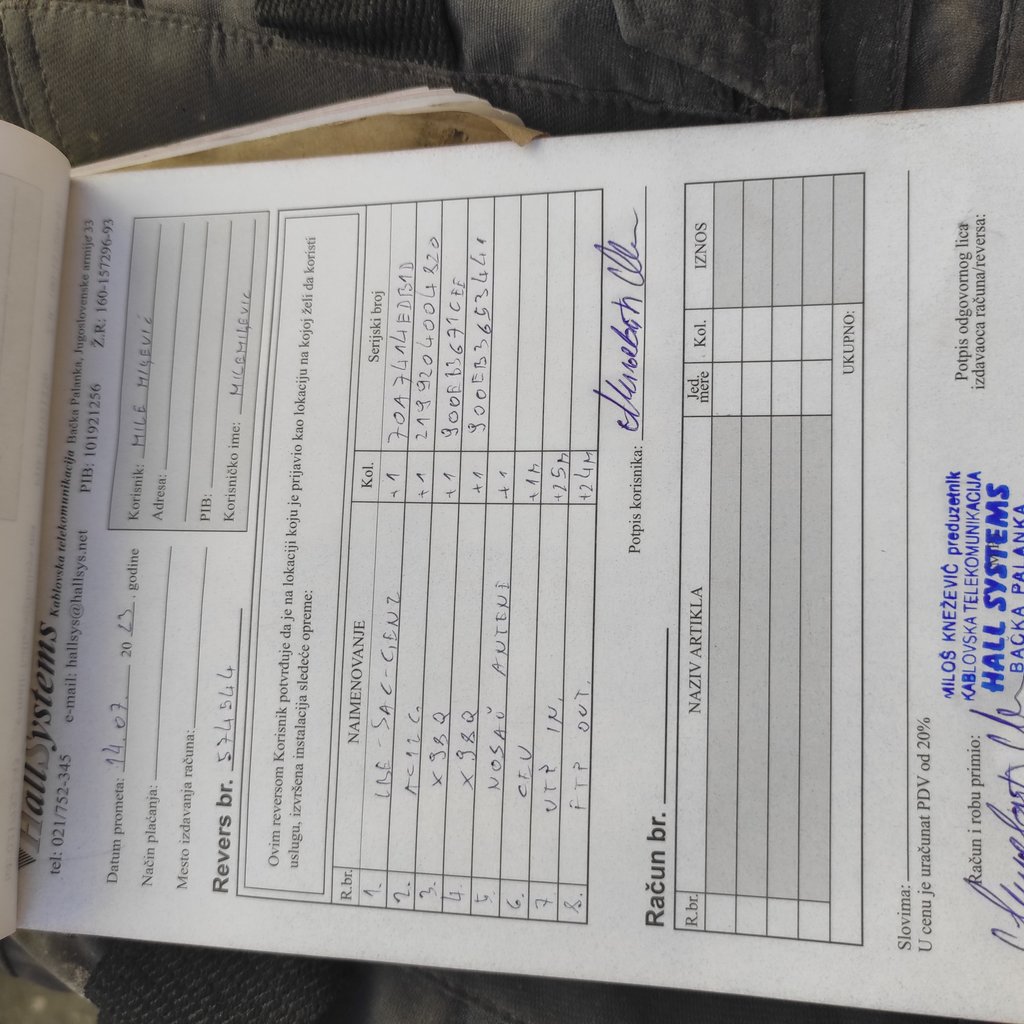 HallSystems Kablovska telekomunikacija Bačka Palanka, Jugoslovenske armije 33
tel: 021/752-345 e-mail: hallsys@hallsys.net PIB: 101921256 Ž.R: 160-157296-93
Datum prometa: 14.07. 2023. godine
Način plaćanja:
Mesto izdavanja računa:
Revers br. 574544
Korisnik: MILE MILEVIĆ
Adresa:
PIB:
Korisničko ime: MILEMILEVIC
Ovim reversom Korisnik potvrđuje da je na lokaciji koju je prijavio kao lokaciju na kojoj želi da koristi
uslugu, izvršena instalacija sledeće opreme:
R.br. NAIMENOVANJE Kol. Serijski broj
1. LBE-5AC-GEN2 +1 70A7414EDB1D
2. AC12C. +1 2199204000420
3. X9BQ +1 900EB3671CEE
4. X9BQ +1 900EB3653441
5. NOSAČ ANTENE +1
6. CEV +1m
7. UTP IN. +25m
8. FTP OUT. +24m
Potpis korisnika:
Račun br.
R.br. NAZIV ARTIKLA Jed. mere Kol. IZNOS
UKUPNO:
Slovima:
U cenu je uračunat PDV od 20%
Račun i robu primio:
Potpis odgovornog lica
izdavaoca računa/reversa:
MILOŠ KNEŽEVIĆ preduzetnik
KABLOVSKA TELEKOMUNIKACIJA
HALL SYSTEMS
BAČKA PALANKA